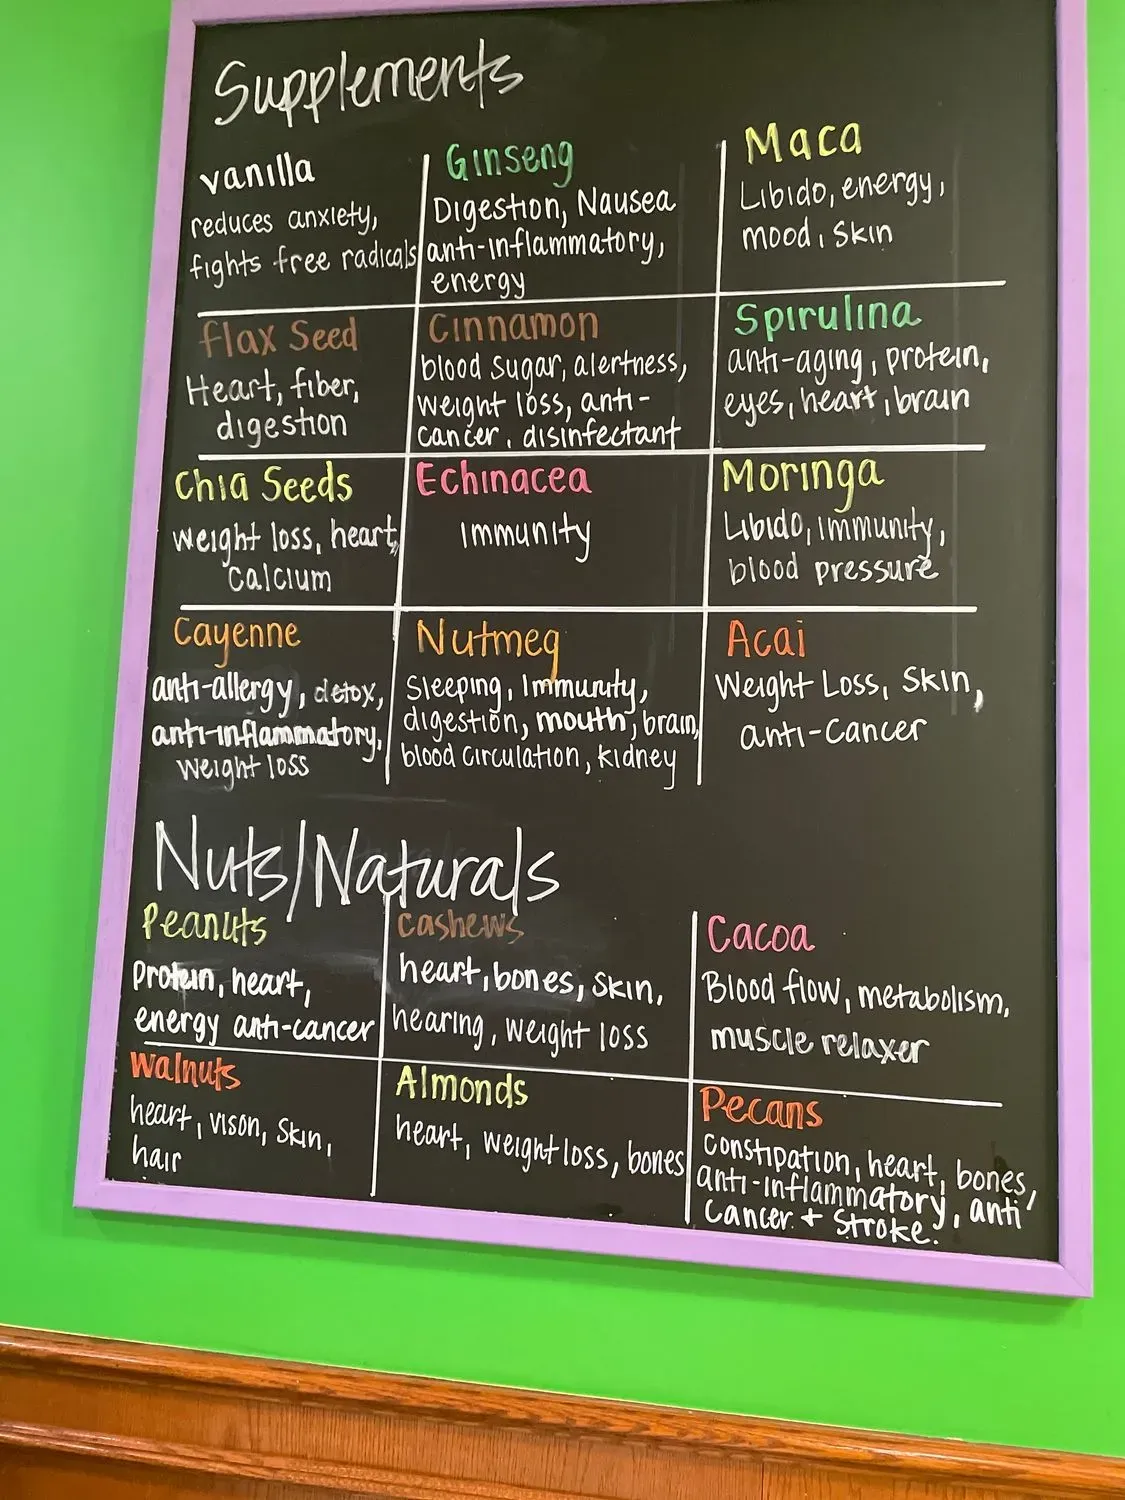 Supplements
vanilla
reduces anxiety,
fights free radicals
Ginseng
Digestion, Nausea
anti-inflammatory,
energy
Maca
Libido, energy,
mood, skin
flax Seed
Heart, fiber,
digestion
Cinnamon
blood sugar, alertness,
weight loss, anti-
cancer, disinfectant
Spirulina
anti-aging, protein,
eyes, heart, brain
Chia Seeds
weight loss, heart,
Calcium
Echinacea
Immunity
Moringa
Libido, immunity,
blood pressure
Cayenne
anti-allergy, detox,
anti-inflammatory,
weight loss
Nutmeg
Sleeping, Immunity,
digestion, mouth, brain,
blood circulation, kidney
Acai
Weight Loss, Skin,
anti-Cancer
Nuts/Naturals
Peanuts
Protein, heart,
energy anti-cancer
Cashews
heart, bones, skin,
hearing, weight loss
Cacoa
Blood flow, metabolism,
muscle relaxer
Walnuts
heart, vison, skin,
hair
Almonds
heart, weight loss, bones
Pecans
Constipation, heart, bones,
anti-inflammatory, anti
Cancer + Stroke.